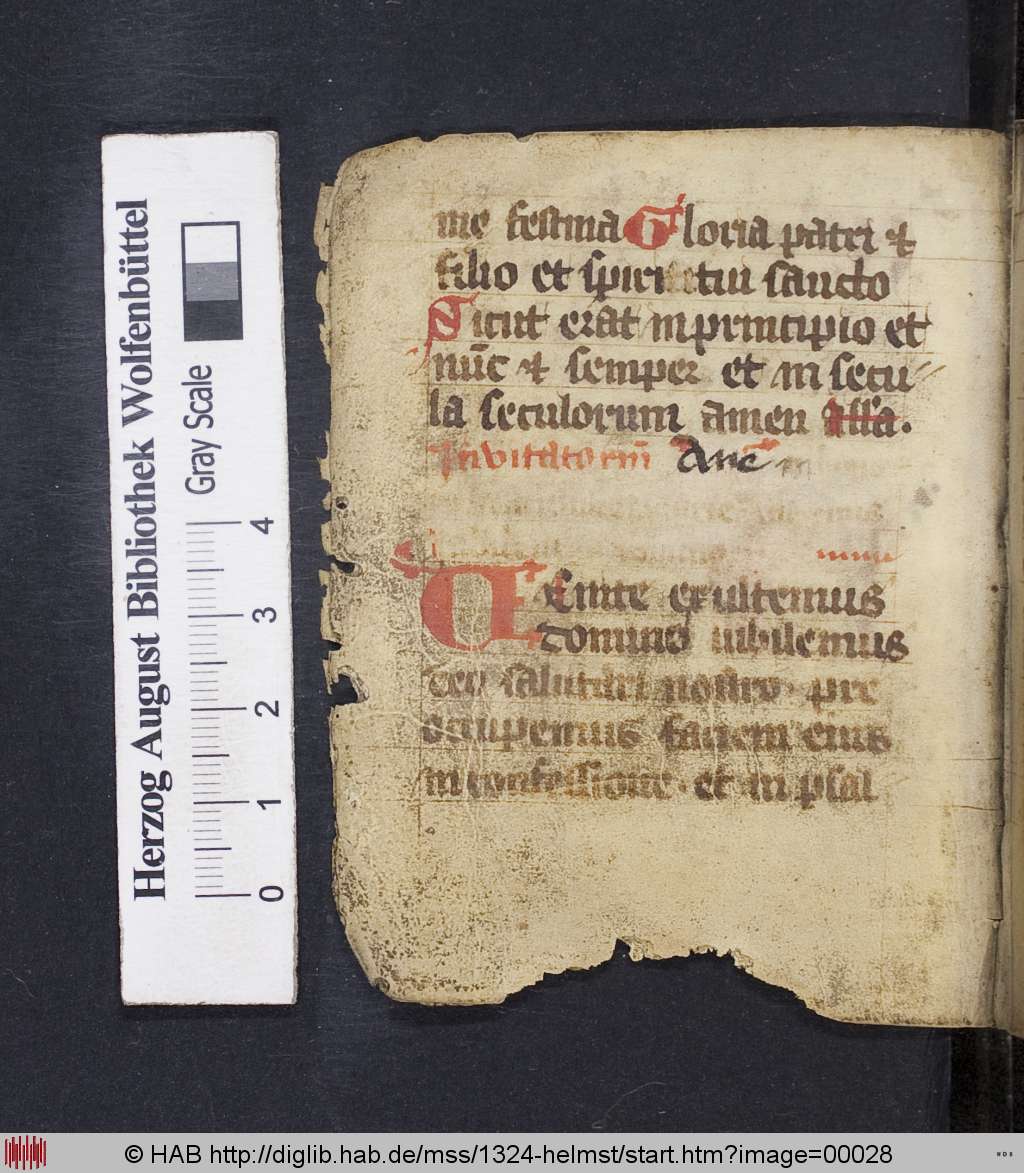 me festina Gloria patri et
filio et spiritui sancto
Sicut erat in principio et
nūc et semper et in secu
la seculorum amen all'a.
Invitatoriū Aue
Uenite exultemus
domino iubilemus
deo salutari nostro pre
occupemus faciem eius
in confessione et in psal
Herzog August Bibliothek Wolfenbüttel
Gray Scale
0 1 2 3 4
© HAB http://diglib.hab.de/mss/1324-helmst/start.htm?image=00028